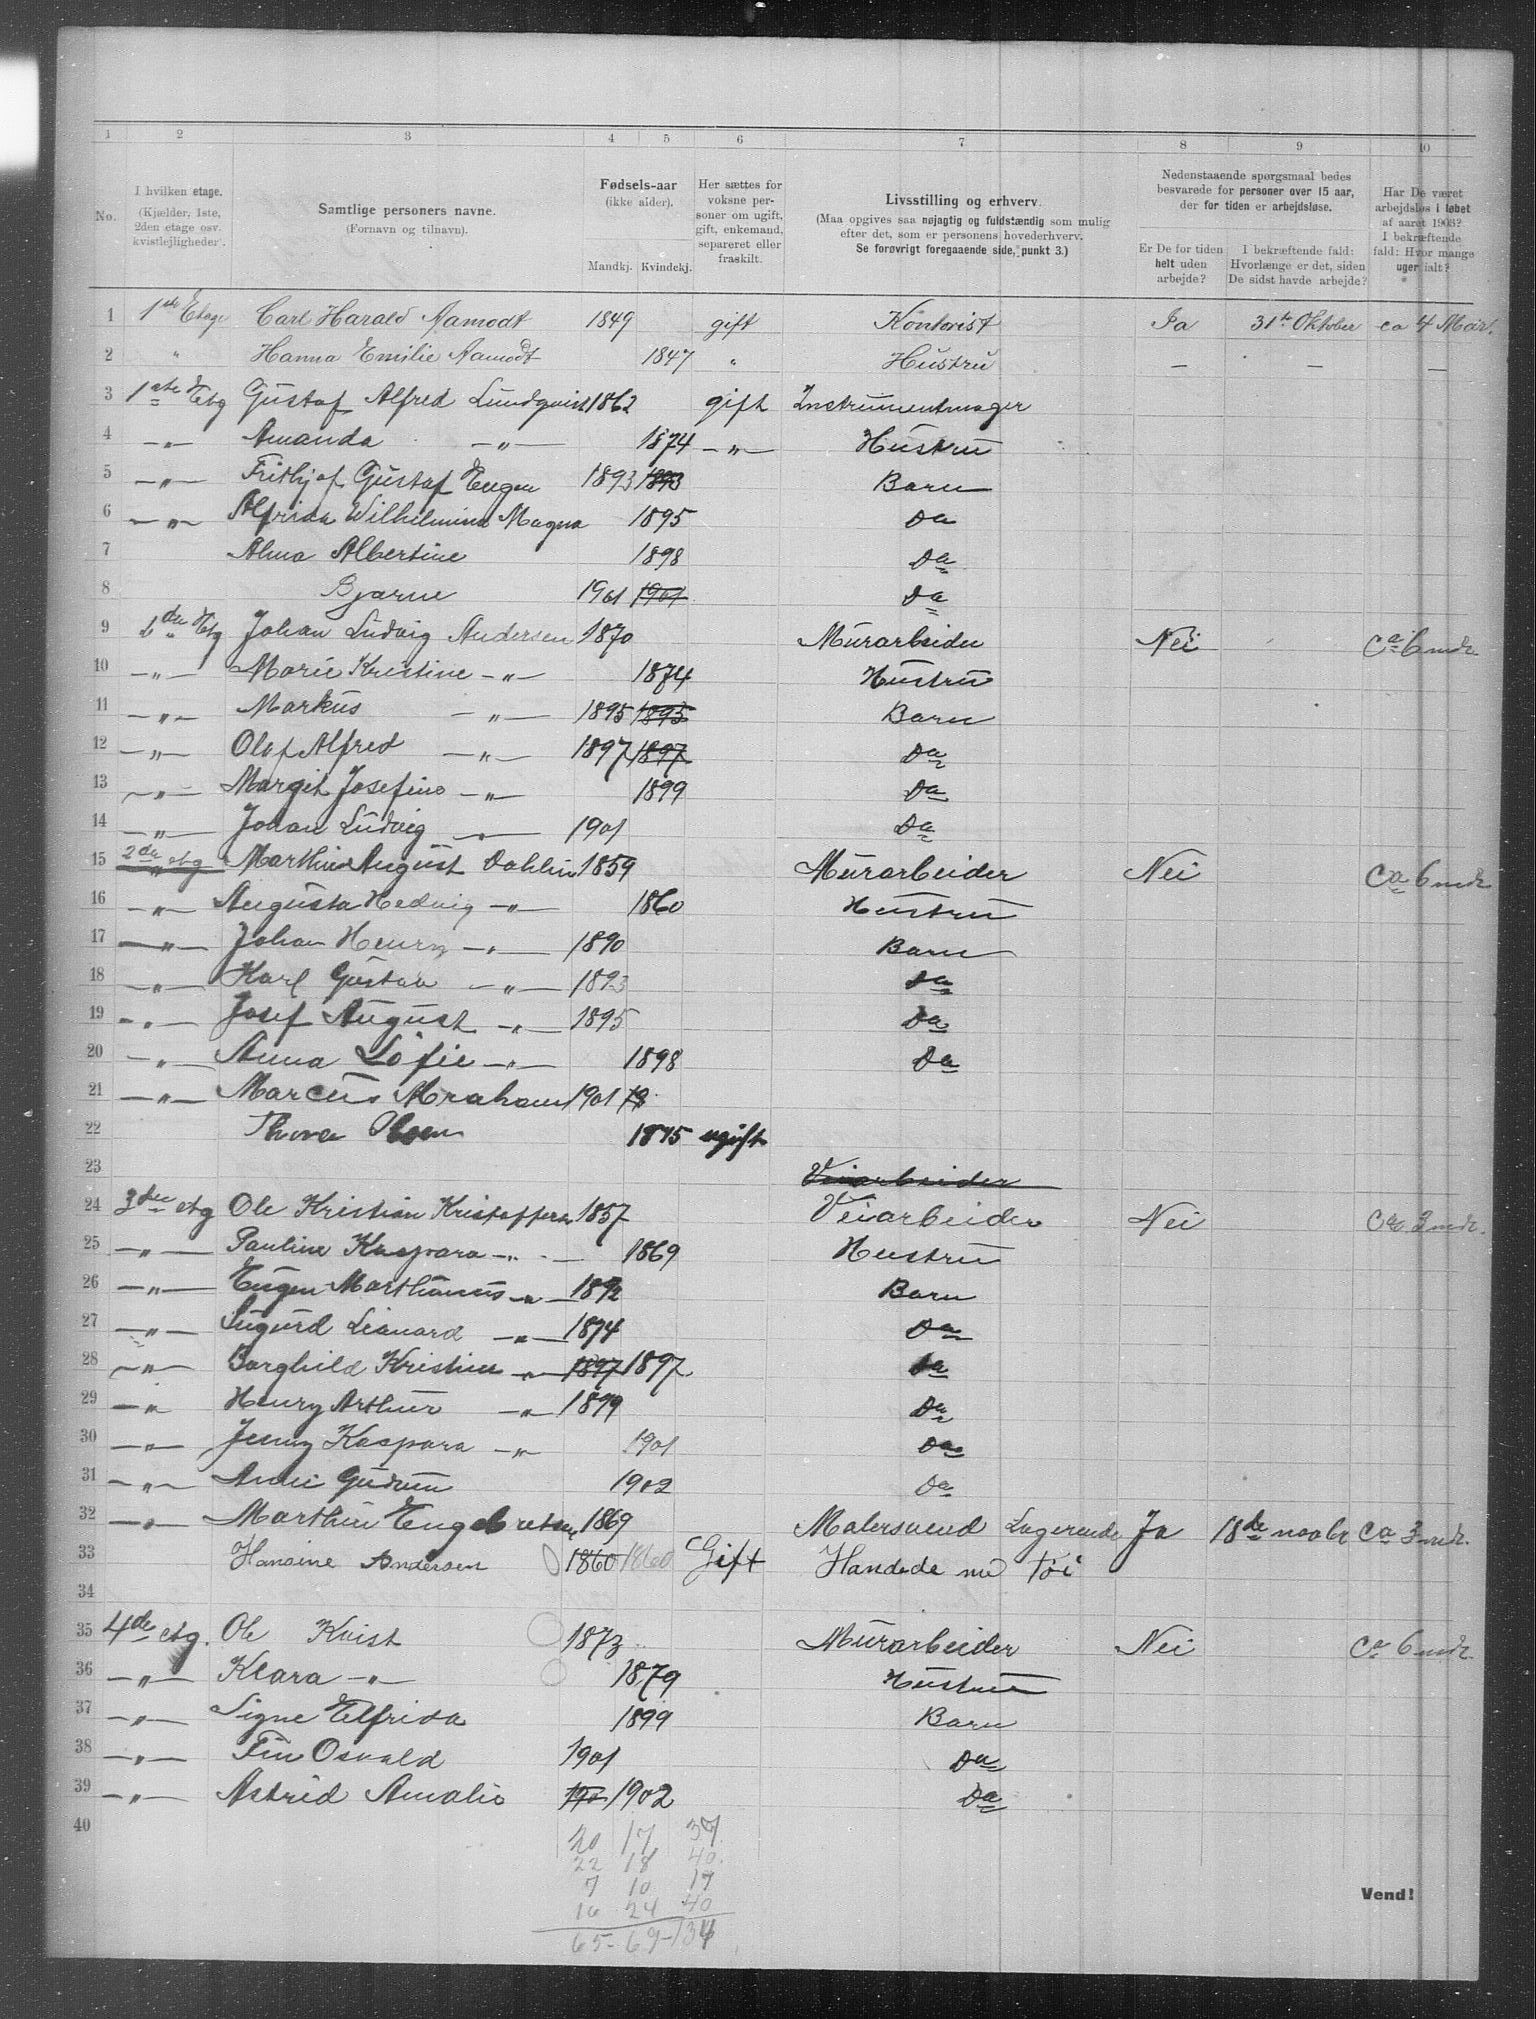 1 2 3 4 5 6 7 8 9 10
No.
I hvilken etage. (Kjælder, 1ste, 2den etage osv. kvistlejligheder).
Samtlige personers navne. (Fornavn og tilnavn).
Fødsels-aar (ikke alder). Mandkj. Kvindekj.
Her sættes for voksne personer om ugift, gift, enkemand, separeret eller fraskilt.
Livsstilling og erhverv. (Maa opgives saa nøjagtig og fuldstændig som mulig efter det, som er personens hovederhverv. Se forøvrigt foregaaende side, punkt 3.)
Nedenstaaende spørgsmaal bedes besvarede for personer over 15 aar, der for tiden er arbejdsløse.
Er De for tiden helt uden arbejde?
I bekræftende fald: Hvorlænge er det, siden De sidst havde arbejde?
Har De været arbejdsløs i løbet af aaret 1903? I bekræftende fald: Hvor mange uger ialt?
1 1ste Etage Carl Harald Aamodt 1849 gift Kontorist Ja 31te Oktober ca 4 Maa.
2 " Hanna Emilie Aamodt 1847 " Hustru — — —
3 1ste Etg Gustaf Alfred Lundqvist 1862 gift Instrumentmager
4 —"— Amanda —"— 1874 —"— Hustru
5 —"— Frithjof Gustaf Eugen 1893 1893 Barn
6 —"— Alfrida Wilhelmine Magna 1895 Do
7 Alma Albertine 1898 Do
8 Bjarne 1901 1901 Do
9 2den Etg Johan Ludvig Andersen 1870 Murarbeider Nei Ca 6 mdr.
10 —"— Marie Kristine —"— 1874 Hustru
11 —"— Markus —"— 1895 1895 Barn
12 —"— Olaf Alfred —"— 1897 1897 Do
13 —"— Margit Josefine —"— 1899 Do
14 —"— Johan Ludvig —"— 1901 Do
15 2den etg Marthin August Dahlin 1859 Murarbeider Nei Ca 6 mdr
16 —"— Augusta Hedvig —"— 1860 Hustru
17 —"— Johan Henry —"— 1890 Barn
18 —"— Karl Gustav —"— 1893 Do
19 —"— Josef August —"— 1895 Do
20 —"— Anna Sofie —"— 1898 Do
21 —"— Marcus Abraham 1901 19
22 Thora Olsen 1875 ugift
23 Veiarbeider
24 3die etg Ole Kristian Kristoffersen 1857 Veiarbeider Nei Ca 3 mdr.
25 —"— Pauline Kaspara —"— 1869 Hustru
26 —"— Eugen Marthinius —"— 1892 Barn
27 —"— Sigurd Leonard —"— 1894 Do
28 —"— Borghild Kristine —"— 1897 1897 Do
29 —"— Henry Arthur —"— 1899 Do
30 —"— Jenny Kaspara —"— 1901 Do
31 —"— Anni Gudrun 1902 Do
32 —"— Marthin Engebretsen 1869 Malersvend Logerende Ja 18de novbr Ca 3 mdr.
33 Hansine Andersen 1860 1860 Gift Handede me Töi
34
35 4de etg. Ole Kvist 1873 Murarbeider Nei Ca 6 mdr.
36 —"— Klara —"— 1879 Hustru
37 —"— Signe Elfrida 1899 Barn
38 —"— Fin Osvald 1901 Do
39 —"— Astrid Amalie 190 1902 Do
40
20 17 37
22 18 40.
7 10 17
16 24 40
65-69-134
Vend!